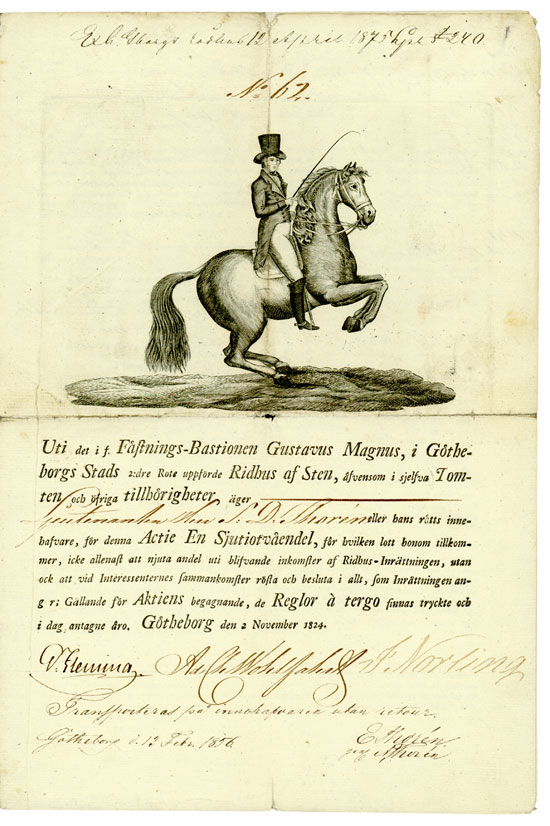 12 April 1875
No 62.
Uti det i f. Fåſtnings-Baſtionen Guſtavus Magnus, i Göthe-
borgs Stads 2:dre Rote uppförde Ridhus af Sten, åfvensom i sjelfva Tom-
ten och öfriga tillhörigheter äger
Lieutenanten Herr S. D. Thorén eller hans rätts inne-
hafvare, för denna Actie En Sjutiotvåendel, för hvilken lott honom tillkom-
mer, icke allenaſt att njuta andel uti blifvande inkomſter af Ridhus-Inrättningen, utan
ock att vid Intereſſenternes ſammankomſter röſta och besluta i allt, ſom Inrättningen an-
g r; Gällande för Aktiens begagnande, de Reglor à tergo finnas tryckte och
i dag antagne äro. Götheborg den 2 November 1824.
V. Fleming. A. Ch. Wohlfahrt F. Norling
Transporteras på innehafvaren utan retour.
Götheborg d. 13 Febr. 1856
E Thorén